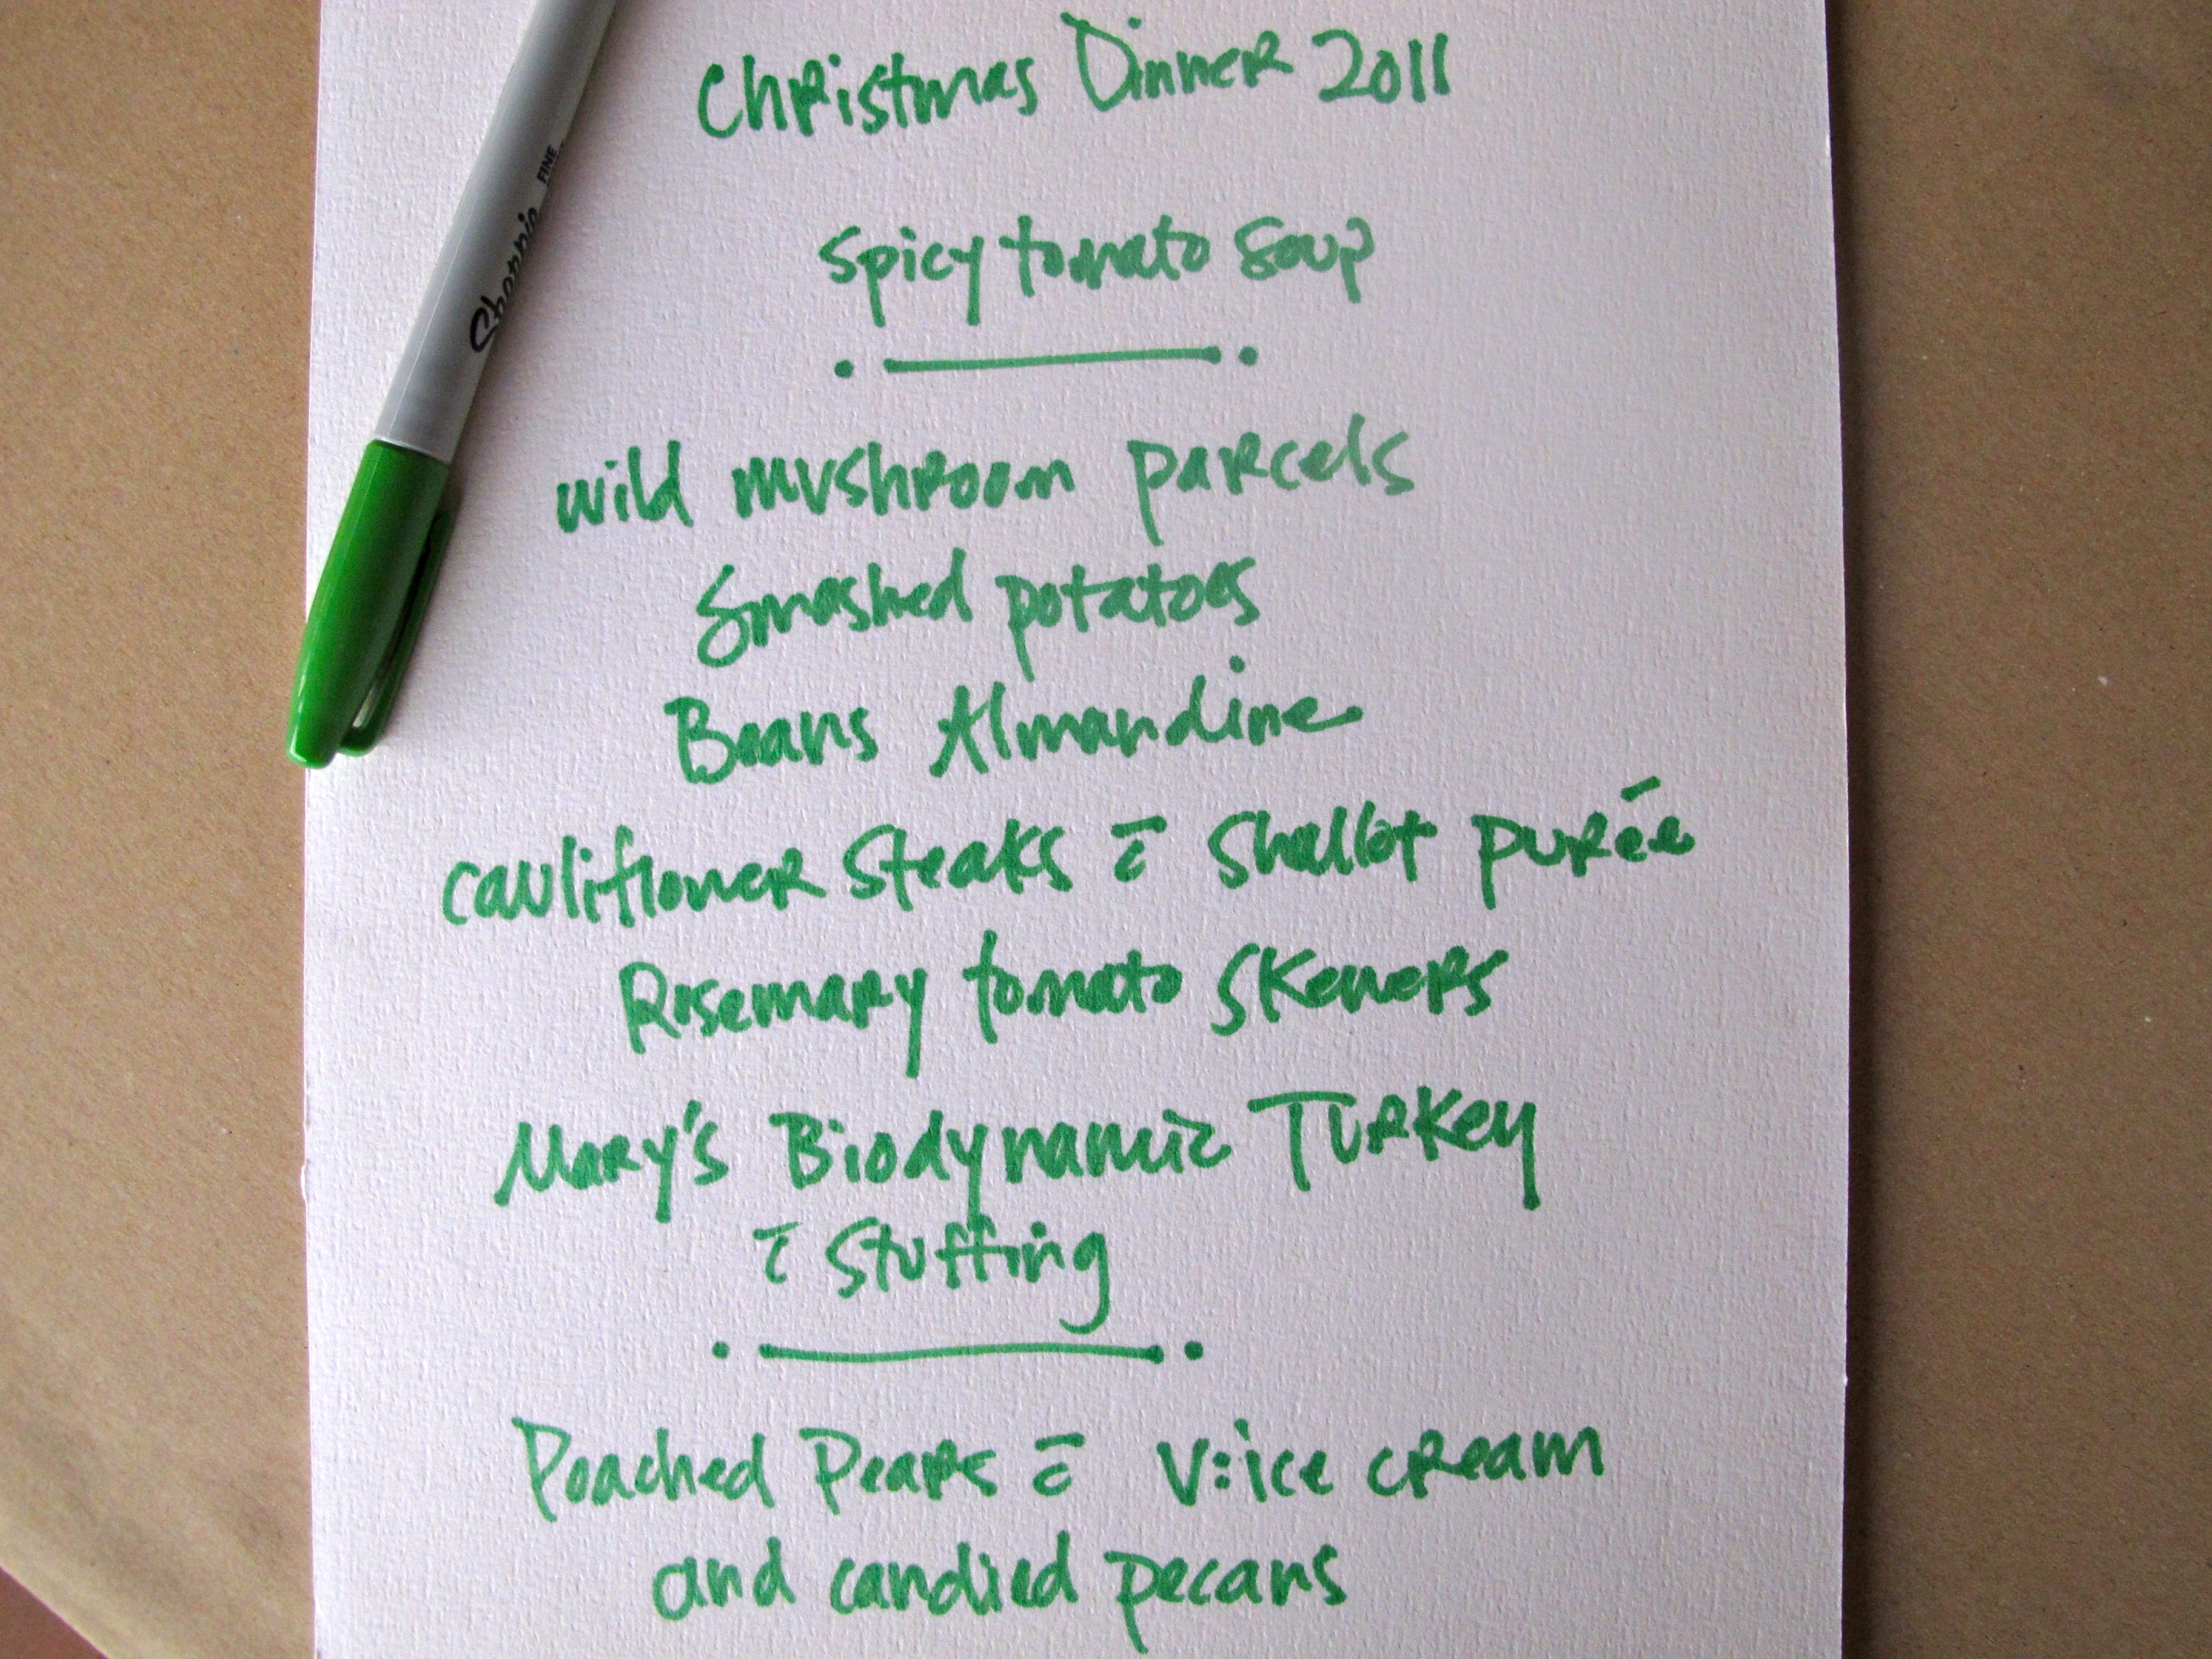 Christmas Dinner 2011
Spicy tomato Soup
wild mushroom parcels
Smashed potatoes
Beans Almandine
cauliflower Steaks c̄ Shallot purée
Rosemary tomato Skewers
Mary's Biodynamic Turkey
c̄ Stuffing
Poached Pears c̄ V:ice cream
and candied pecans
Sharpie FINE